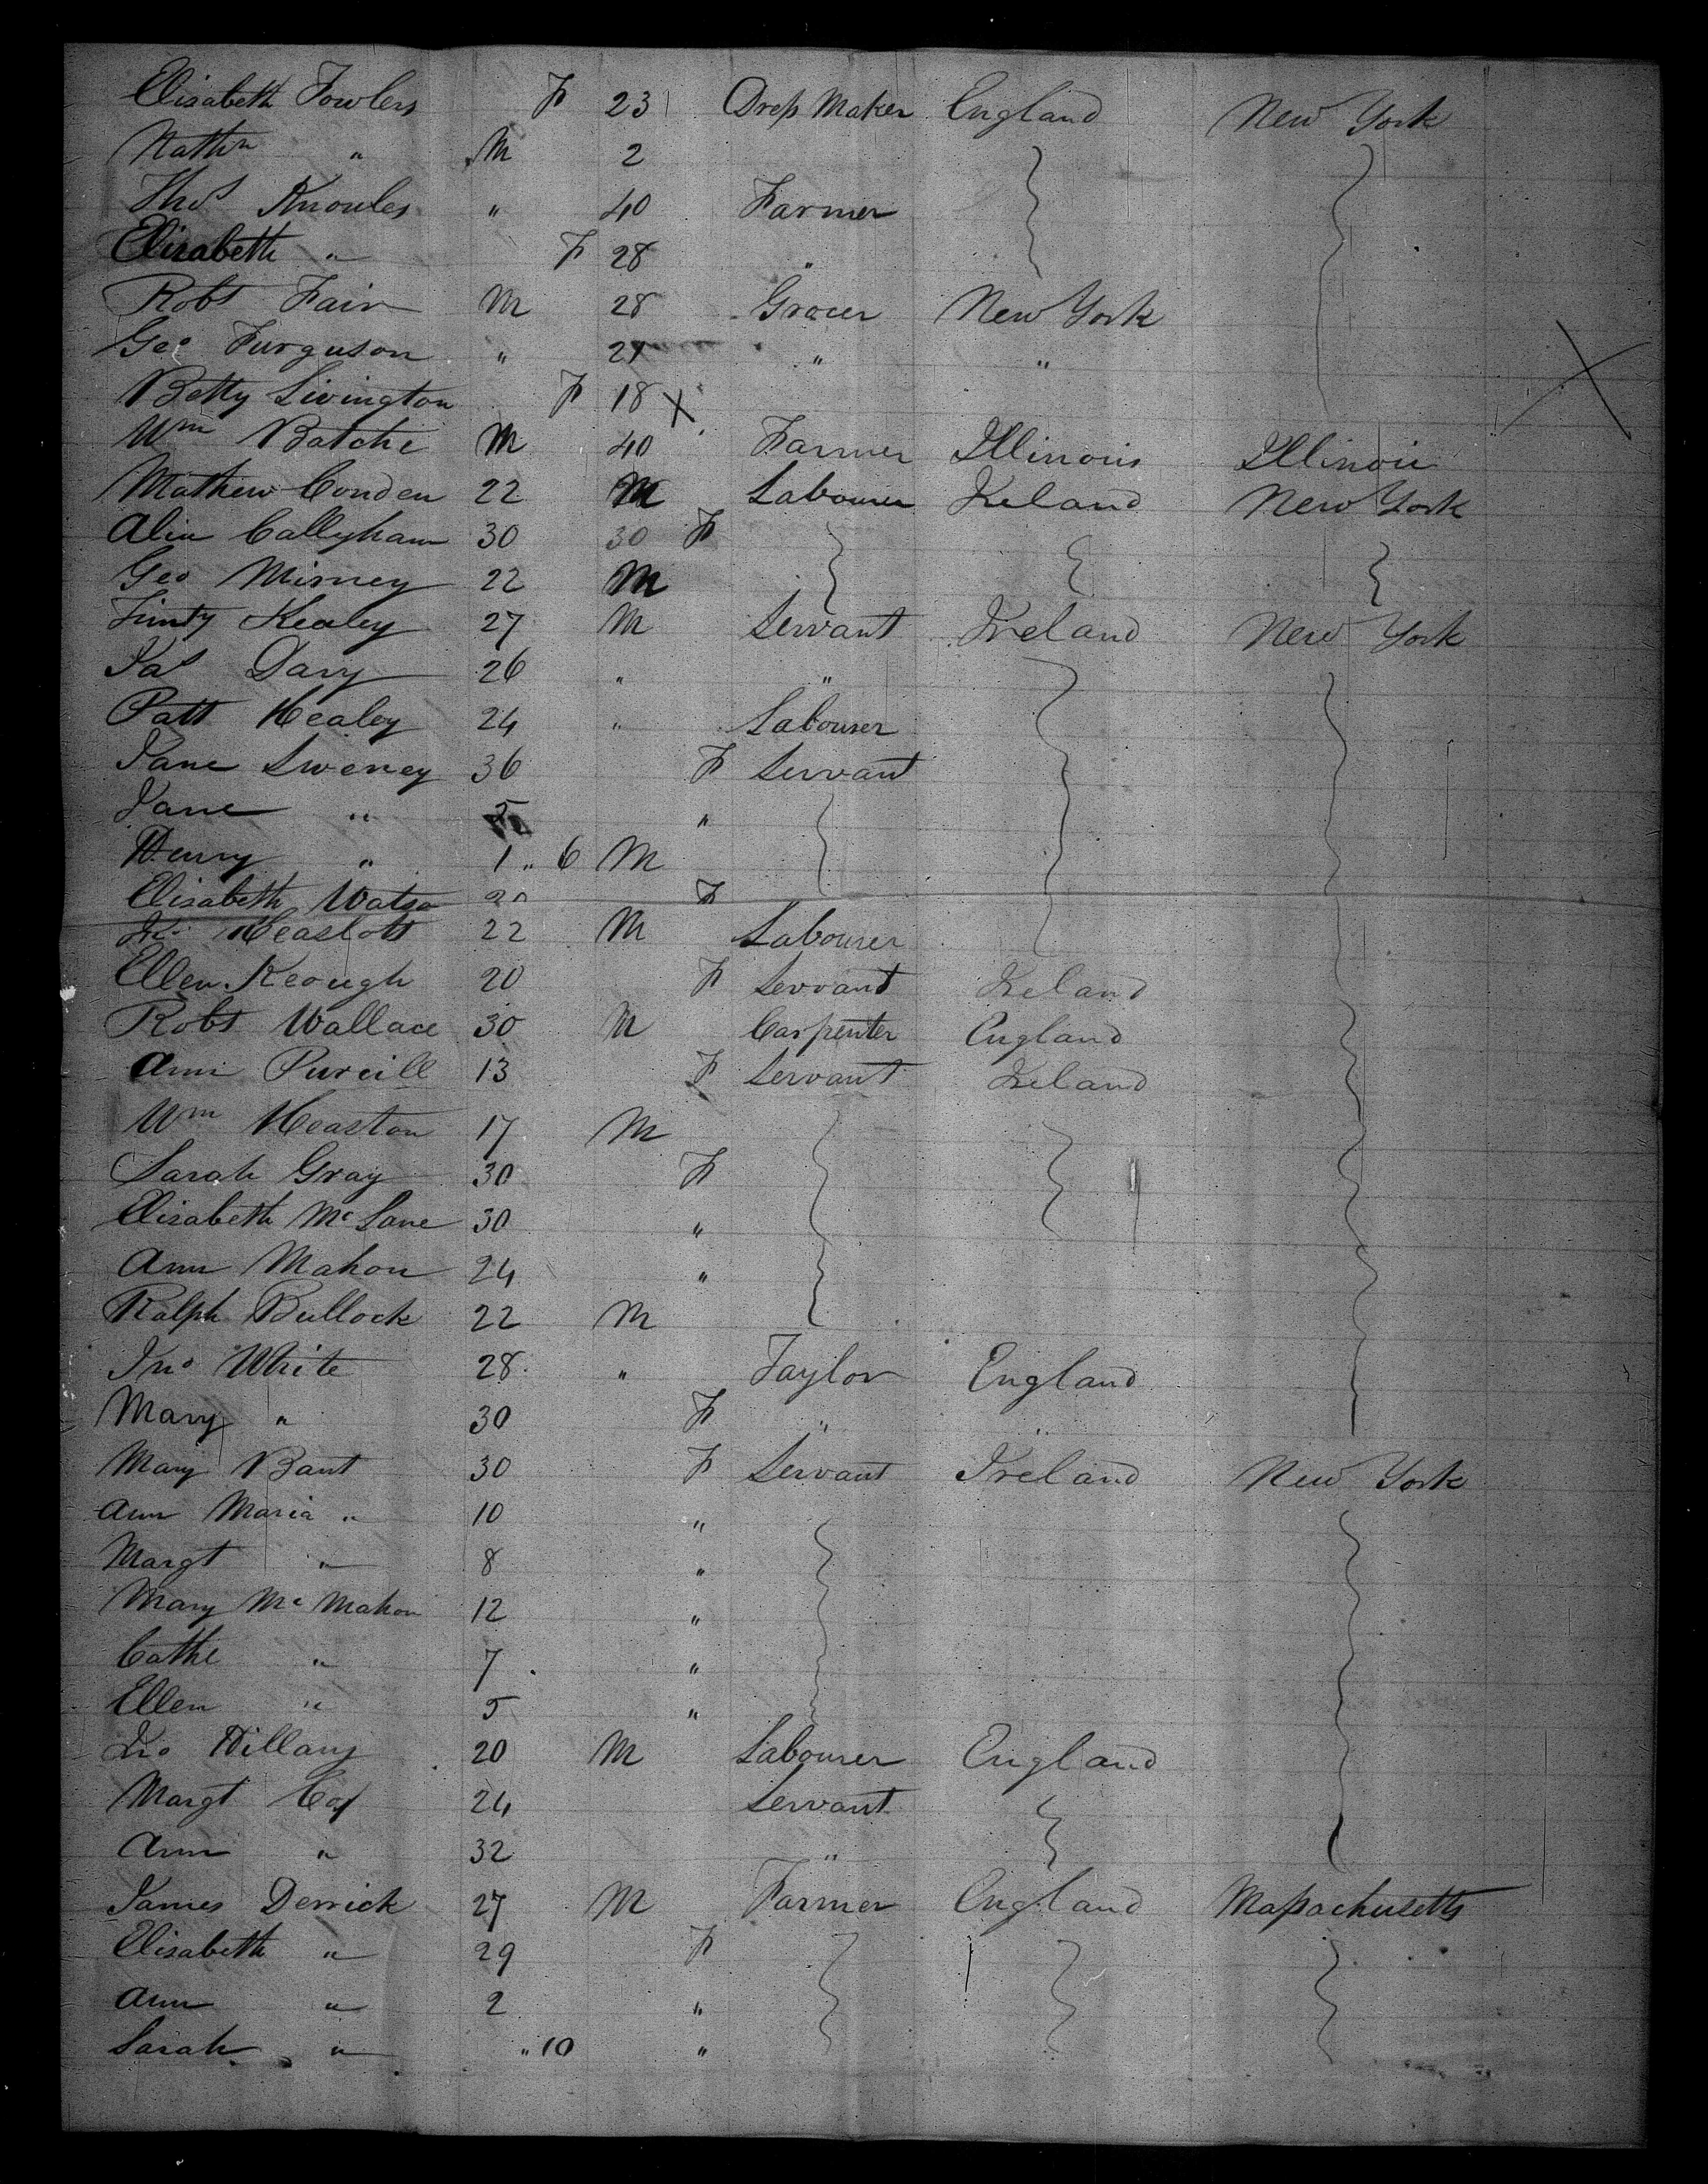 Elisabeth Fowlers F 23 Dress Maker England New York
Nathn " M 2
Thos Knowles " 40 Farmer
Elisabeth " F 28 "
Robt Fair M 28 Grocer New York
Geo Furguson " 21 " "
Betty Livington F 18 X
Wm Batche M 40 Farmer Illinois Illinois
Mathew Conden 22 M Labourer Ireland New York
Alice Callyham 30 30 F
Geo Mirney 22 M
Timty Kealey 27 M Servant Ireland New York
Jas Davy 26 " "
Patt Healey 24 " Labourer
Jane Sweney 36 F Servant
Jane " 5 "
Henry " 1 " 6 M
Elisabeth Watso 20 F
Jno Heaslott 22 M Labourer
Ellen Keough 20 F Servant Ireland
Robt Wallace 30 M Carpenter England
Ann Purcill 13 F Servant Ireland
Wm Heaston 17 M
Sarah Gray 30 F
Elisabeth Mc Lane 30 "
Ann Mahon 24 "
Ralph Bullock 22 M
Jno White 28 " Taylor England
Mary " 30 F " "
Mary Bant 30 F Servant Ireland New York
Ann Maria " 10 "
Margt " 8 "
Mary Mc Mahon 12 "
Cathe " 7 "
Ellen " 5 "
Jno Hillany 20 M Labourer England
Margt 24 Servant
Ann " 32 "
James Derrick 27 M Farmer England Massachusetts
Elisabeth " 29 F
Ann " 2 "
Sarah " " 10 "